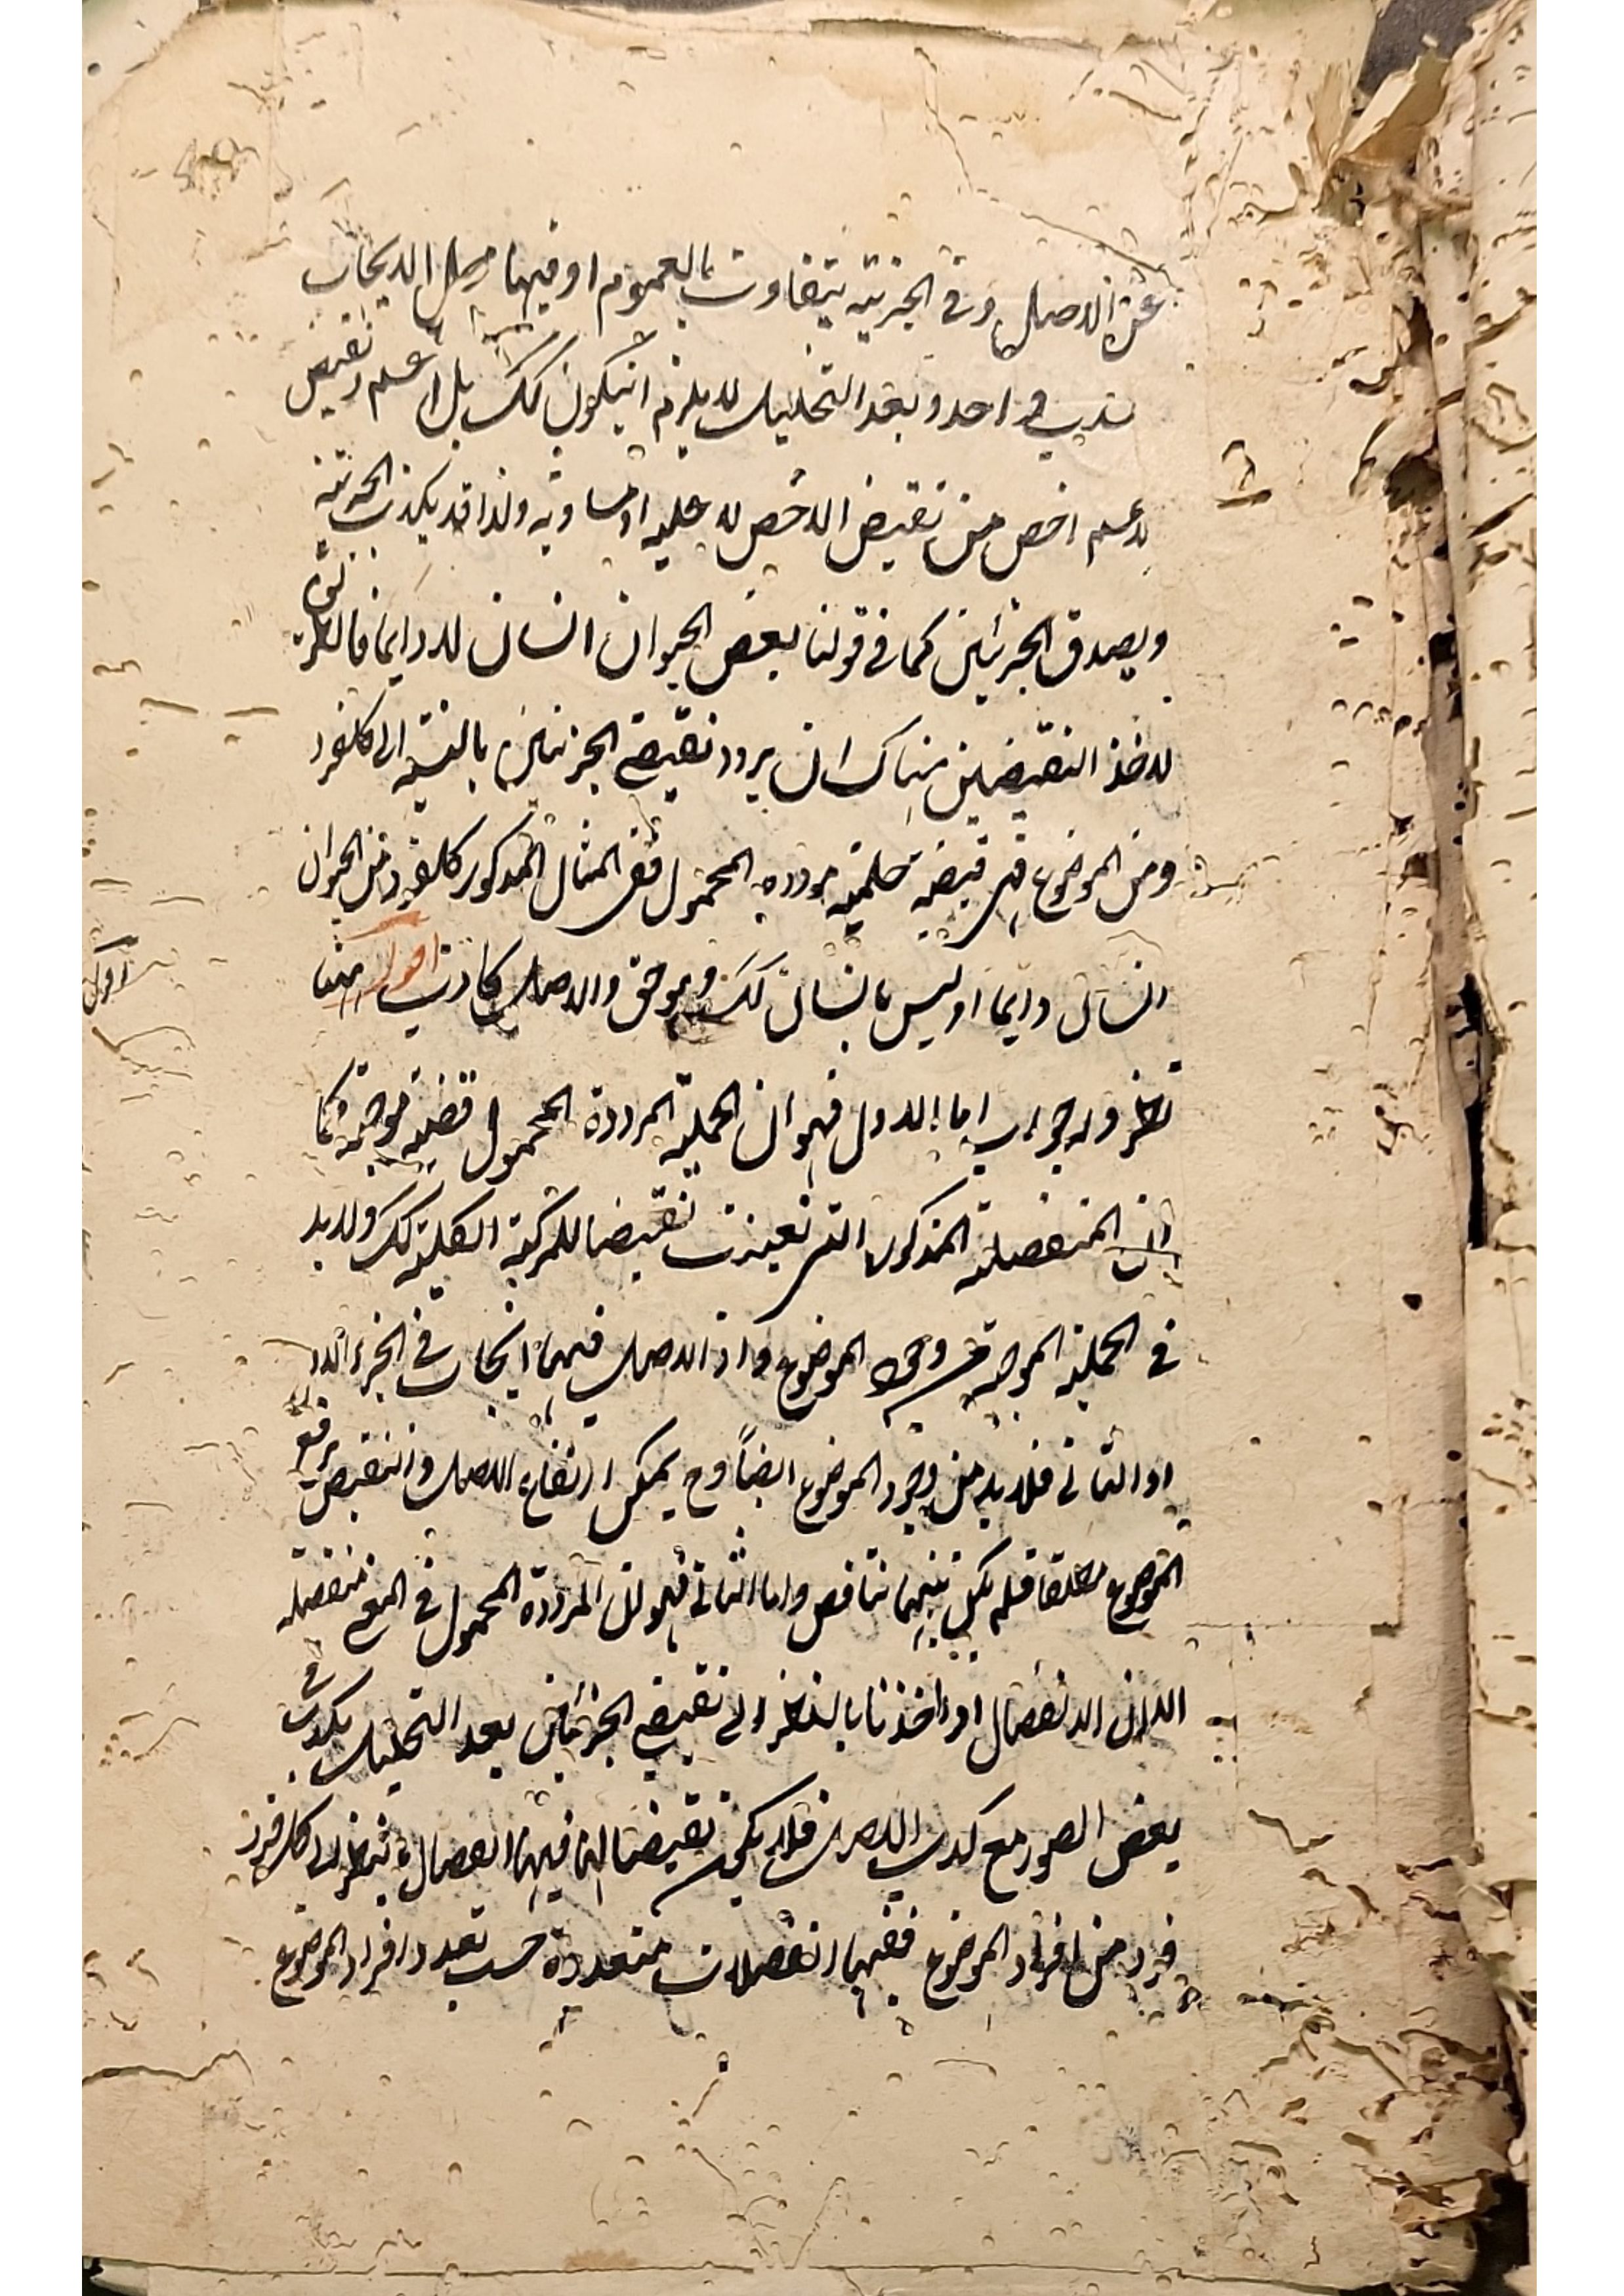 عن الاصل وفى الجزئية يتفاوت بالعموم اذ فيها محل الايجاب
سلب واحد وبعد التحليل لا يلزم ان يكون كك بل اعم ونقيض
لاعم اخص من نقيض الاخص لا عليه او مساويه ولذا قد يكذب الجزئية
ويصدق الجزئين كما فى قولنا بعض الحيوان انسان لا دايما فالطريق
لاخذ النقيضين هناك ان يردد نقيضى الجزئين بالنسبة الى كل فرد
ومن الموضوع فهى قضية حملية مرددة المحمول ففى المثال المذكور كل فرد من الحيوان
انسان دايما او ليس بانسان كك وهو حق والاصل كاذب اقول ههنا
نظر وله جواب اما الاول فهو ان الحملية المرددة المحمول قضية موجبة وكما
ان المنفصلة المذكورة التى تعينت نقيضا للمركبة الكلية كك ولا بد
فى الحملية الموجبة من وجود الموضوع واذ الاصل فيها ايجاب فى الجزء الاول
او الثانى فلا بد من وجود الموضوع ايضاً وح يمكن ارتفاع الاصل والنقيض برفع
الموضوع مطلقا فلم يكن بينهما تناقض واما الثانى فهو لان المرددة المحمول فى المعنى منفصلة
الا ان الانفصال اذا اخذنا بالنظر الى نقيضى الجزئين بعد التحليل يكذب فى
بعض الصور مع كذب الاصل فلا يكون نقيضا لها فيها انفصال بالنظر الى كل فرد
فرد من افراد الموضوع ففيها انفصالات متعددة حسب تعدد افراد الموضوع
اقول